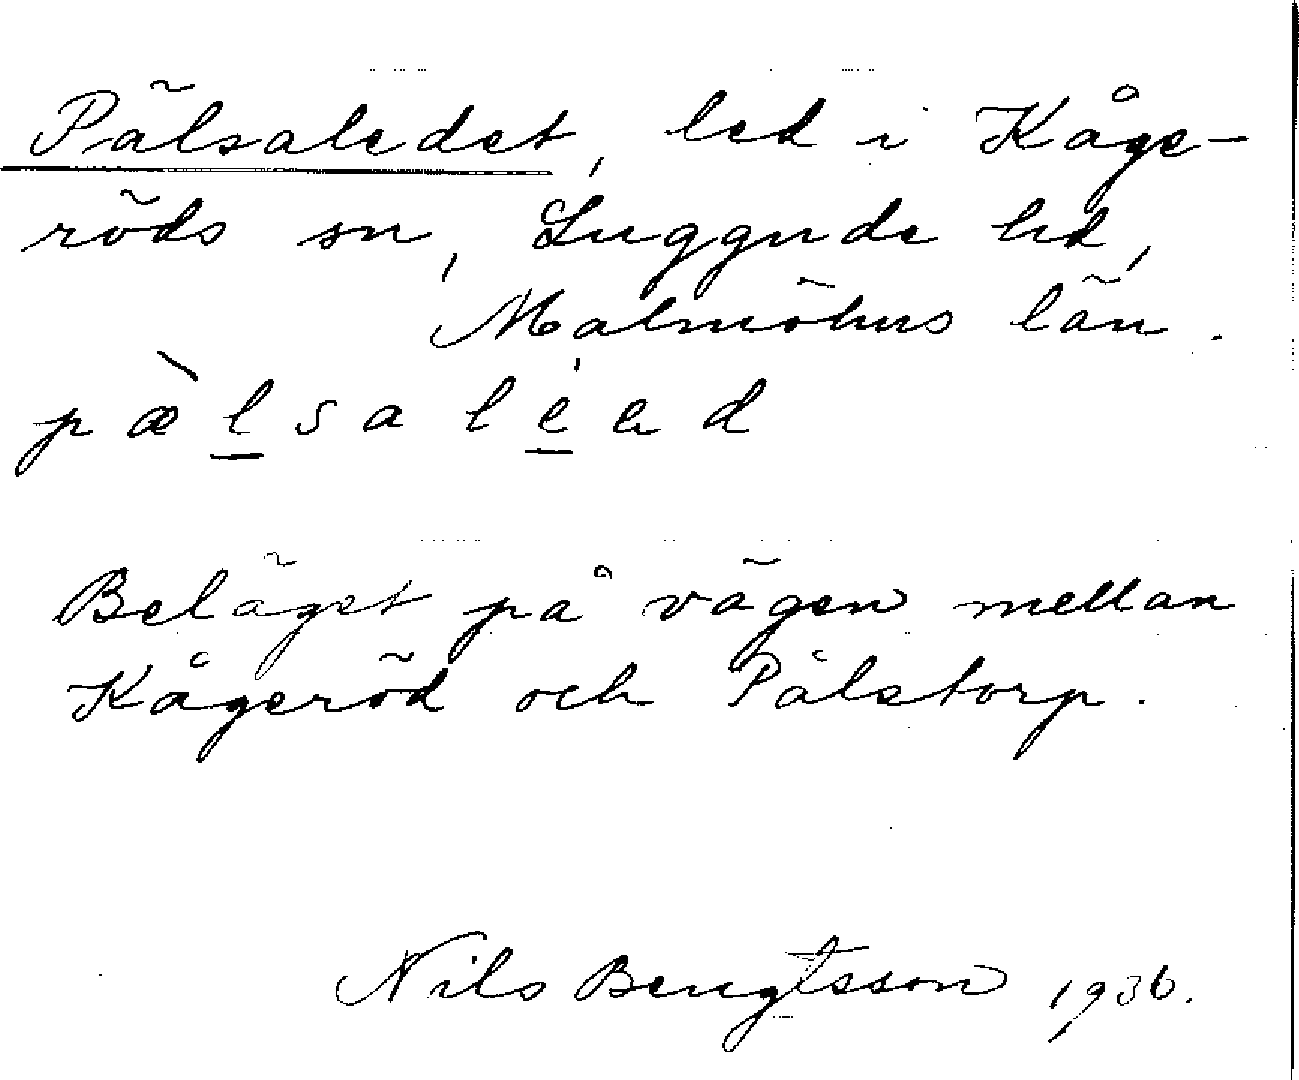 Pälsaledet, led i Kåge-
röds sn, Luggude hd,
Malmöhus län.
pæ̀lsaléad
Beläget på vägen mellan
Kågeröd och Pålstorp.
Nils Bengtsson 1936.